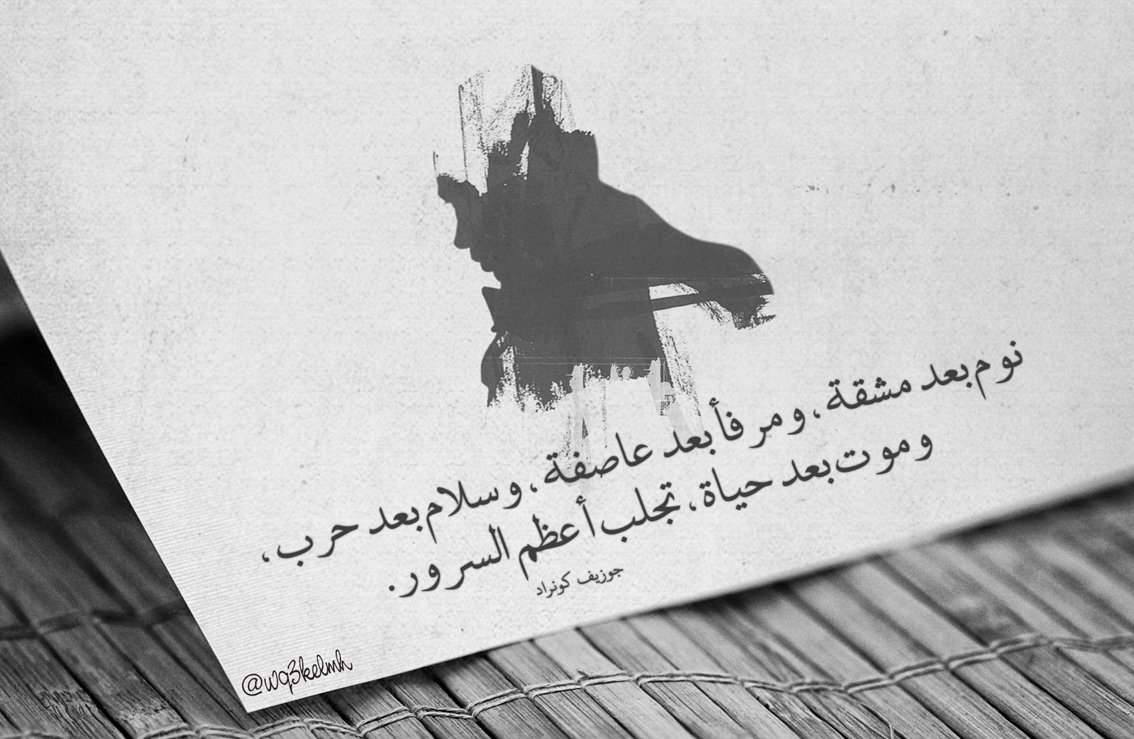 نوم بعد مشقة، ومرفأ بعد عاصفة، وسلام بعد حرب،
وموت بعد حياة، تجلب أعظم السرور.
جوزيف كونراد
@wq3kelmh